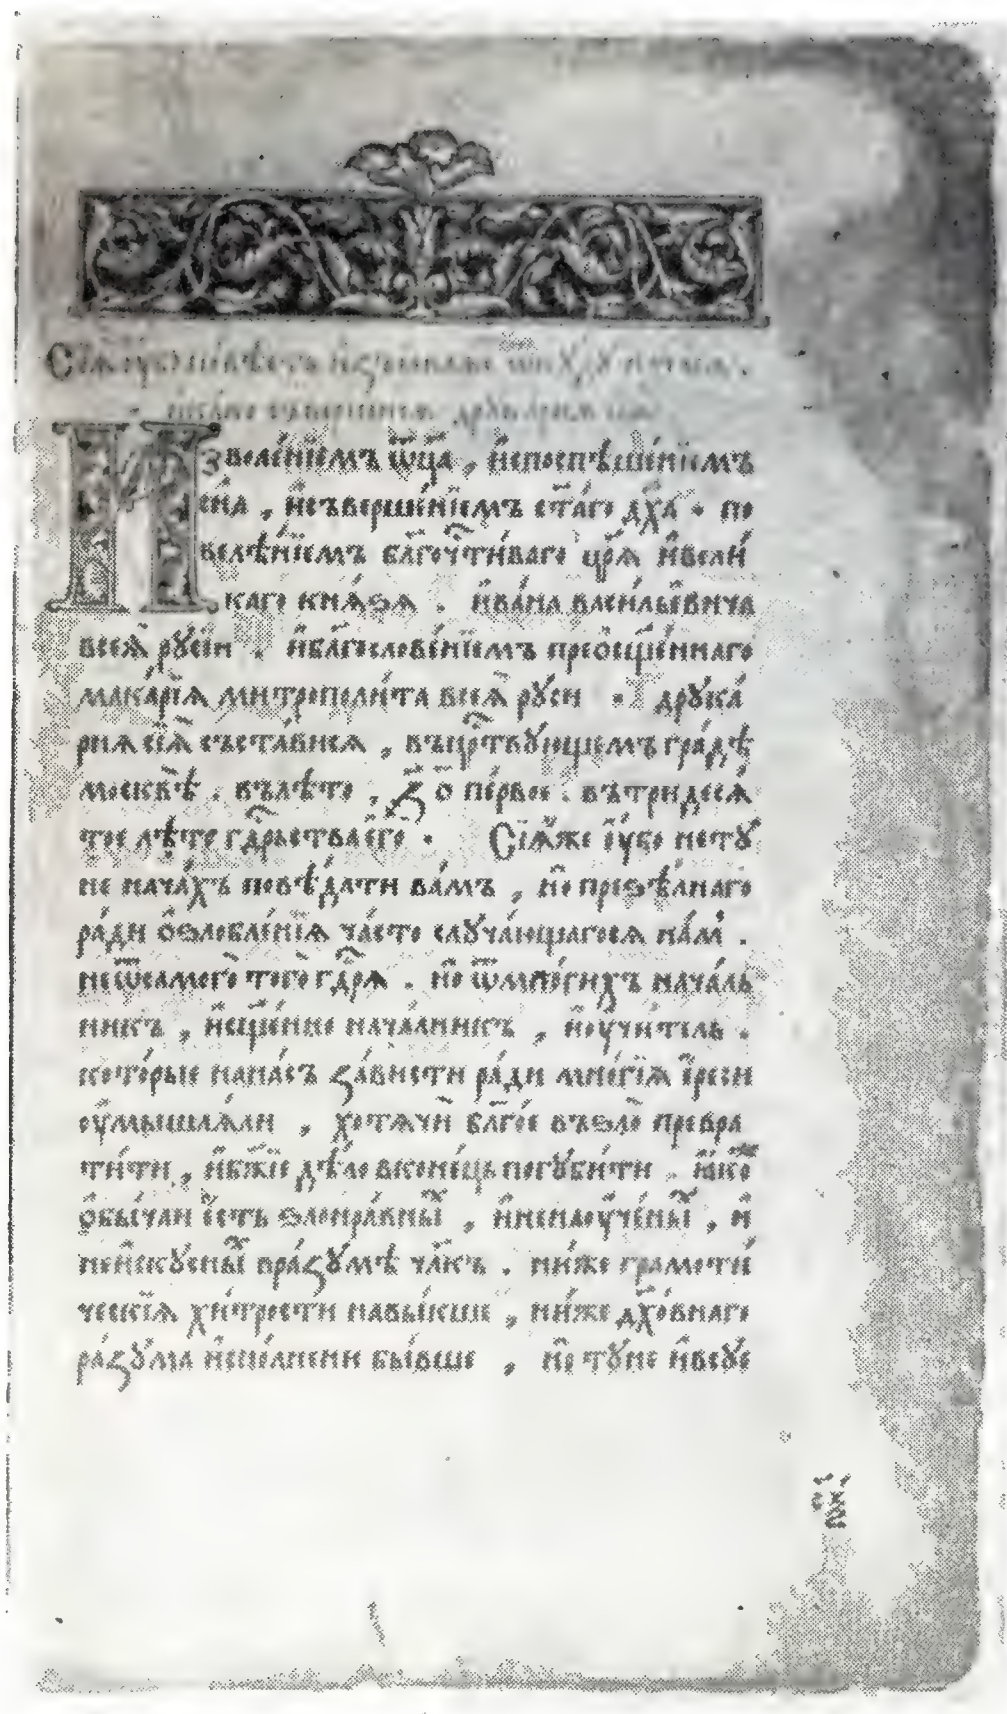 Сїѧ̀ ᲂу҆́бо по́вѣсть и҆з̾ѧвлѧ́етъ ѿкꙋ́дꙋ начасѧ̀,
и҆ка́ко съверши́сѧ дрꙋка́рнѧ сїѧ̀
Изволе́нїемъ ѿц҃а̀, и҆поспѣше́нїемъ
сн҃а, и҆съверше́нїемъ ст҃а́го дх҃а · по
велѣ́нїемъ бл҃гочⷭ҇ти́ваго цр҃ѧ̀ и҆вели́
каго кнѧ́ѕѧ . и҆ва́на васи́льевича
всеѧ̀ рꙋсі́и . и҆бл҃гослове́нїемъ прео҆сщ҃е́ннаго
мака́рїѧ митрополи́та всеѧ̀ рꙋси · дрꙋка́
рнѧ сїѧ̀ съста́висѧ , въцрⷭ҇твꙋющемъ гра́дѣ
москвѣ̀ . вълѣ́то , ҂з҃ о҃ пе́рвое . вътридесѧ́
тое лѣ́то гдⷭ҇рьства є҆гѡ̀ · Сїѧ́же ᲂу҆́бо нетꙋ́
не нача́хъ повѣ́дати ва́мъ , но̀ презѣ́лнаго
ра́ди о҆ѕлобле́нїѧ ча́сто слꙋча́ющагосѧ на́м .
неѿсамого̀ того̀ гдⷭ҇рѧ . но̀ ѿмно́гихъ нача́ль
никъ , и҆сщ҃е́нноначалникъ , и҆ᲂу҆чи́тель .
кото́рые нана́съ за́висти ра́ди мно́гїѧ є҆́реси
ᲂу҆мышлѧ́ли , хотѧчи́ бл҃го́е въѕло̀ превра
ти́ти , и҆бж҃їе дѣ́ло вконе́цъ погꙋби́ти . ꙗ҆́коⷤ
о҆бы́чаи є҆́сть ѕлонра́вныⷯ , и҆ненаᲂу҆че́ныⷯ , и҆
неи҆скꙋсныⷯ вра́зꙋмѣ чл҃къ . ни́же грамоти́
ческїѧ хи́трости навы́кше , ни́же дх҃о́внаго
ра́зꙋма и҆спо́лнени бы́вше , но̀ тꙋ́не и҆всꙋ́е